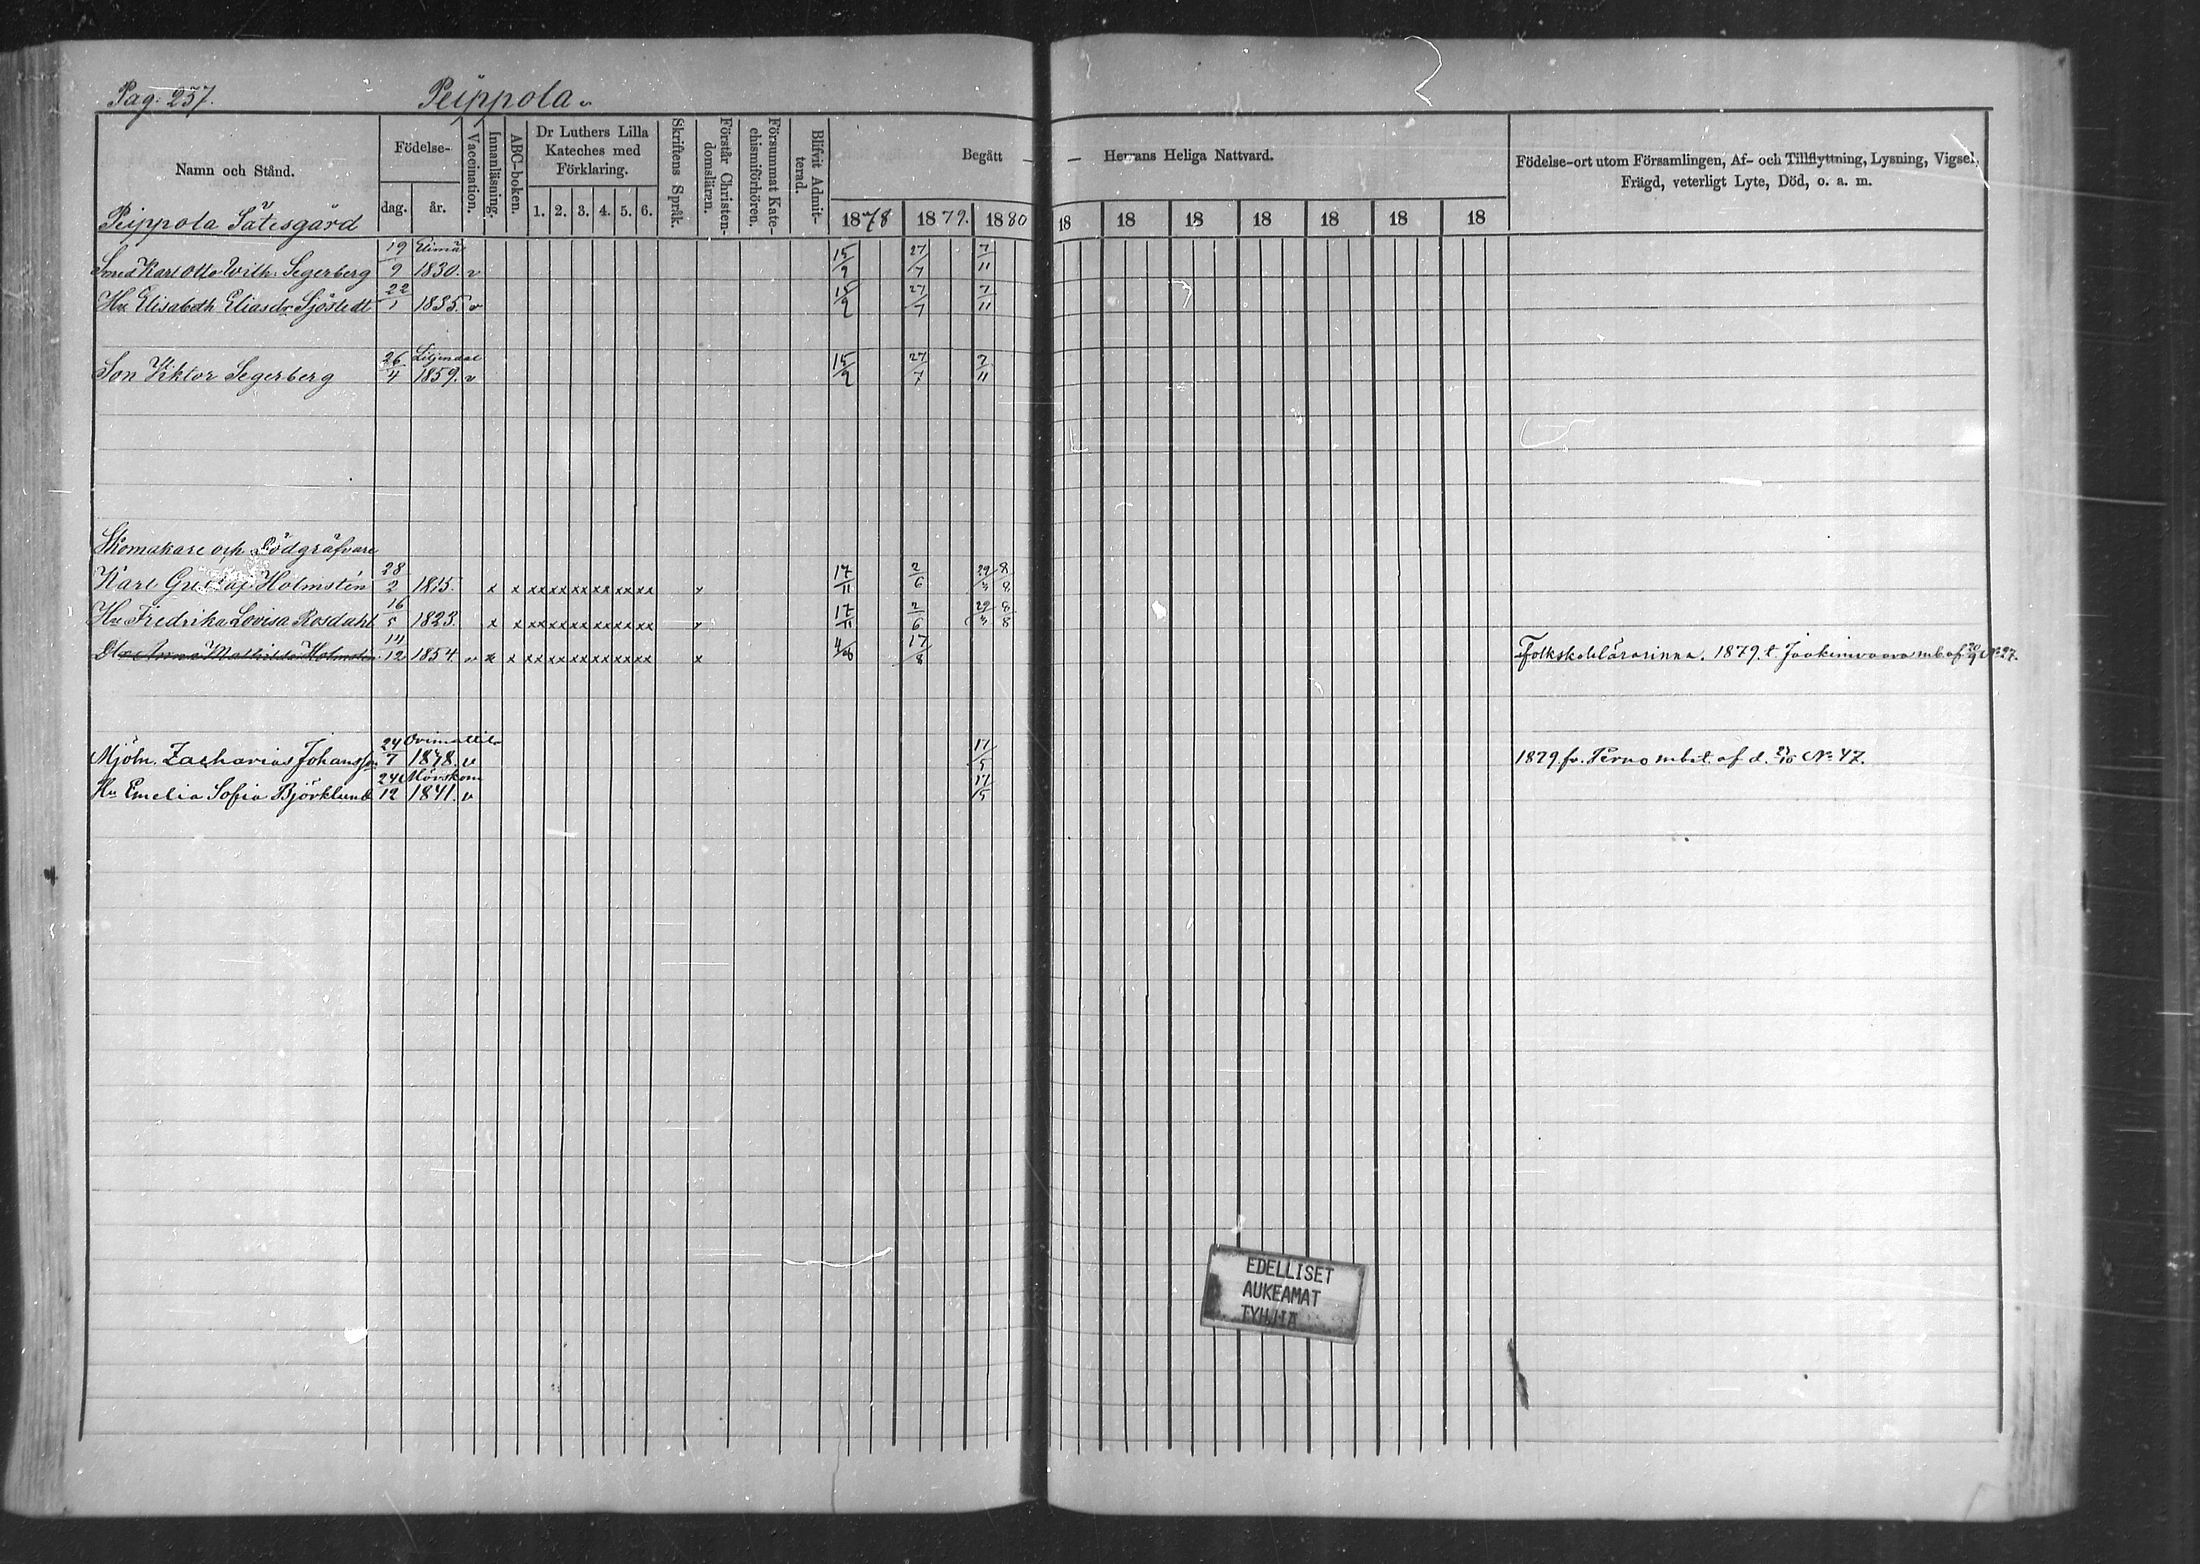 Pag. 257. Peippola
Namn och Stånd. Födelse- dag. år. Vaccination. Innanläsning. ABC-boken. Dr Luthers Lilla Kateches med Förklaring. 1. 2. 3. 4. 5. 6. Skriftens Språk. Förstår Christendomsläran. Försummat Katechismiförhören. Blifvit Admitterad. Begått — — Herrans Heliga Nattvard. Födelse-ort utom Församlingen, Af- och Tillflyttning, Lysning, Vigsel, Frägd, veterligt Lyte, Död, o. a. m.
1878 1879. 1880 18 18 18 18 18 18 18
Peippola Sätesgård
Smed Karl Otto Wilh. Segerberg 19/9 Elimä 1830. v 15/9 27/7 7/11
Hu Elisabeth Eliasdr Sjöstedt 22/1 1835. v 15/9 27/7 7/11
Son Viktor Segerberg 26/4 Liljendal 1859. v 15/9 27/7 7/11
Skomakare och Dödgräfvare
Karl Gustaf Holmstén 28/2 1815. x x xx xx xx xx xx xx x 17/11 2/6 29/3 8/8
Hu Fredrika Lovisa Rosdahl 16/5 1823. x x xx xx xx xx xx xx x 17/11 2/6 29/3 8/8
Dtr Anna Mathilda Holmstén 1854. v x x xx xx xx xx xx xx x 17/8 Folkskolelärarinna. 1879. t. Jaakimvaara mb af No 27.
Mjöln. Zacharias Johansson 24/7 Orimattila 1878. v 17/5 1879 fr. Perno mbet. af d. No 47.
Hu Emelia Sofia Björklund 24/12 Mörskom 1841. v 17/5
EDELLISET
AUKEAMAT
TYHJIÄ